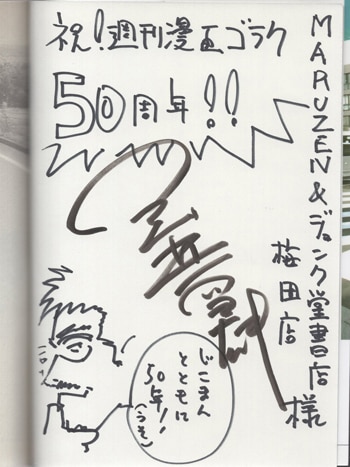 祝!週刊漫画ゴラク
50周年!!
MARUZEN&ジュンク堂書店
梅田店
様
じこまん
とともに
50年!
(うそ)